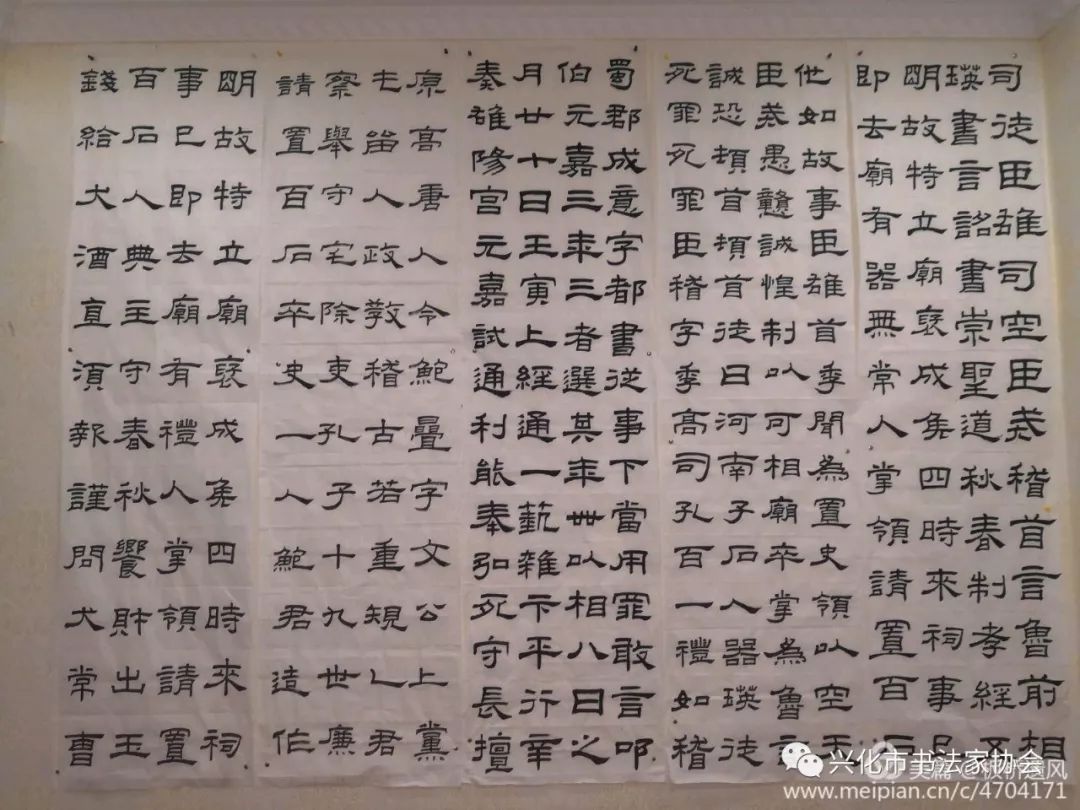 司徒臣雄司空臣戒稽首言魯前相
瑛書言詔書崇聖道秋春制孝經
明故特立廟褒成侯四時來祠事已
即去廟有器無常人掌領請置百石
他如故事臣雄首季聞為置史領以空王
臣戒愚戇誠惶制以可相廟卒掌為魯
誠恐頓首頓首徒曰河南子石人器瑛徒
死罪死罪臣稽字季高司孔百一禮如稽
蜀郡成意字都書從事下當用罪敢言叩
伯元嘉三年三者選其年卌以相八曰之
月廿十日壬寅上經通一藝雜卞平行辛
奏雒陽宮元嘉試通利能奉弘死守長擅
原高唐人令鮑疊字文公上黨
屯留人政教稽古若重規乙君
察舉守宅除吏孔子十九世廉
請置百石卒史一人鮑君造作
明故特立廟褒成侯四時來祠
事已即去廟有禮人掌領請置
百石人典主守春秋饗財出王
錢給犬酒直須報謹問大常曹
兴化市书法家协会
www.meipian.cn/c/4704171